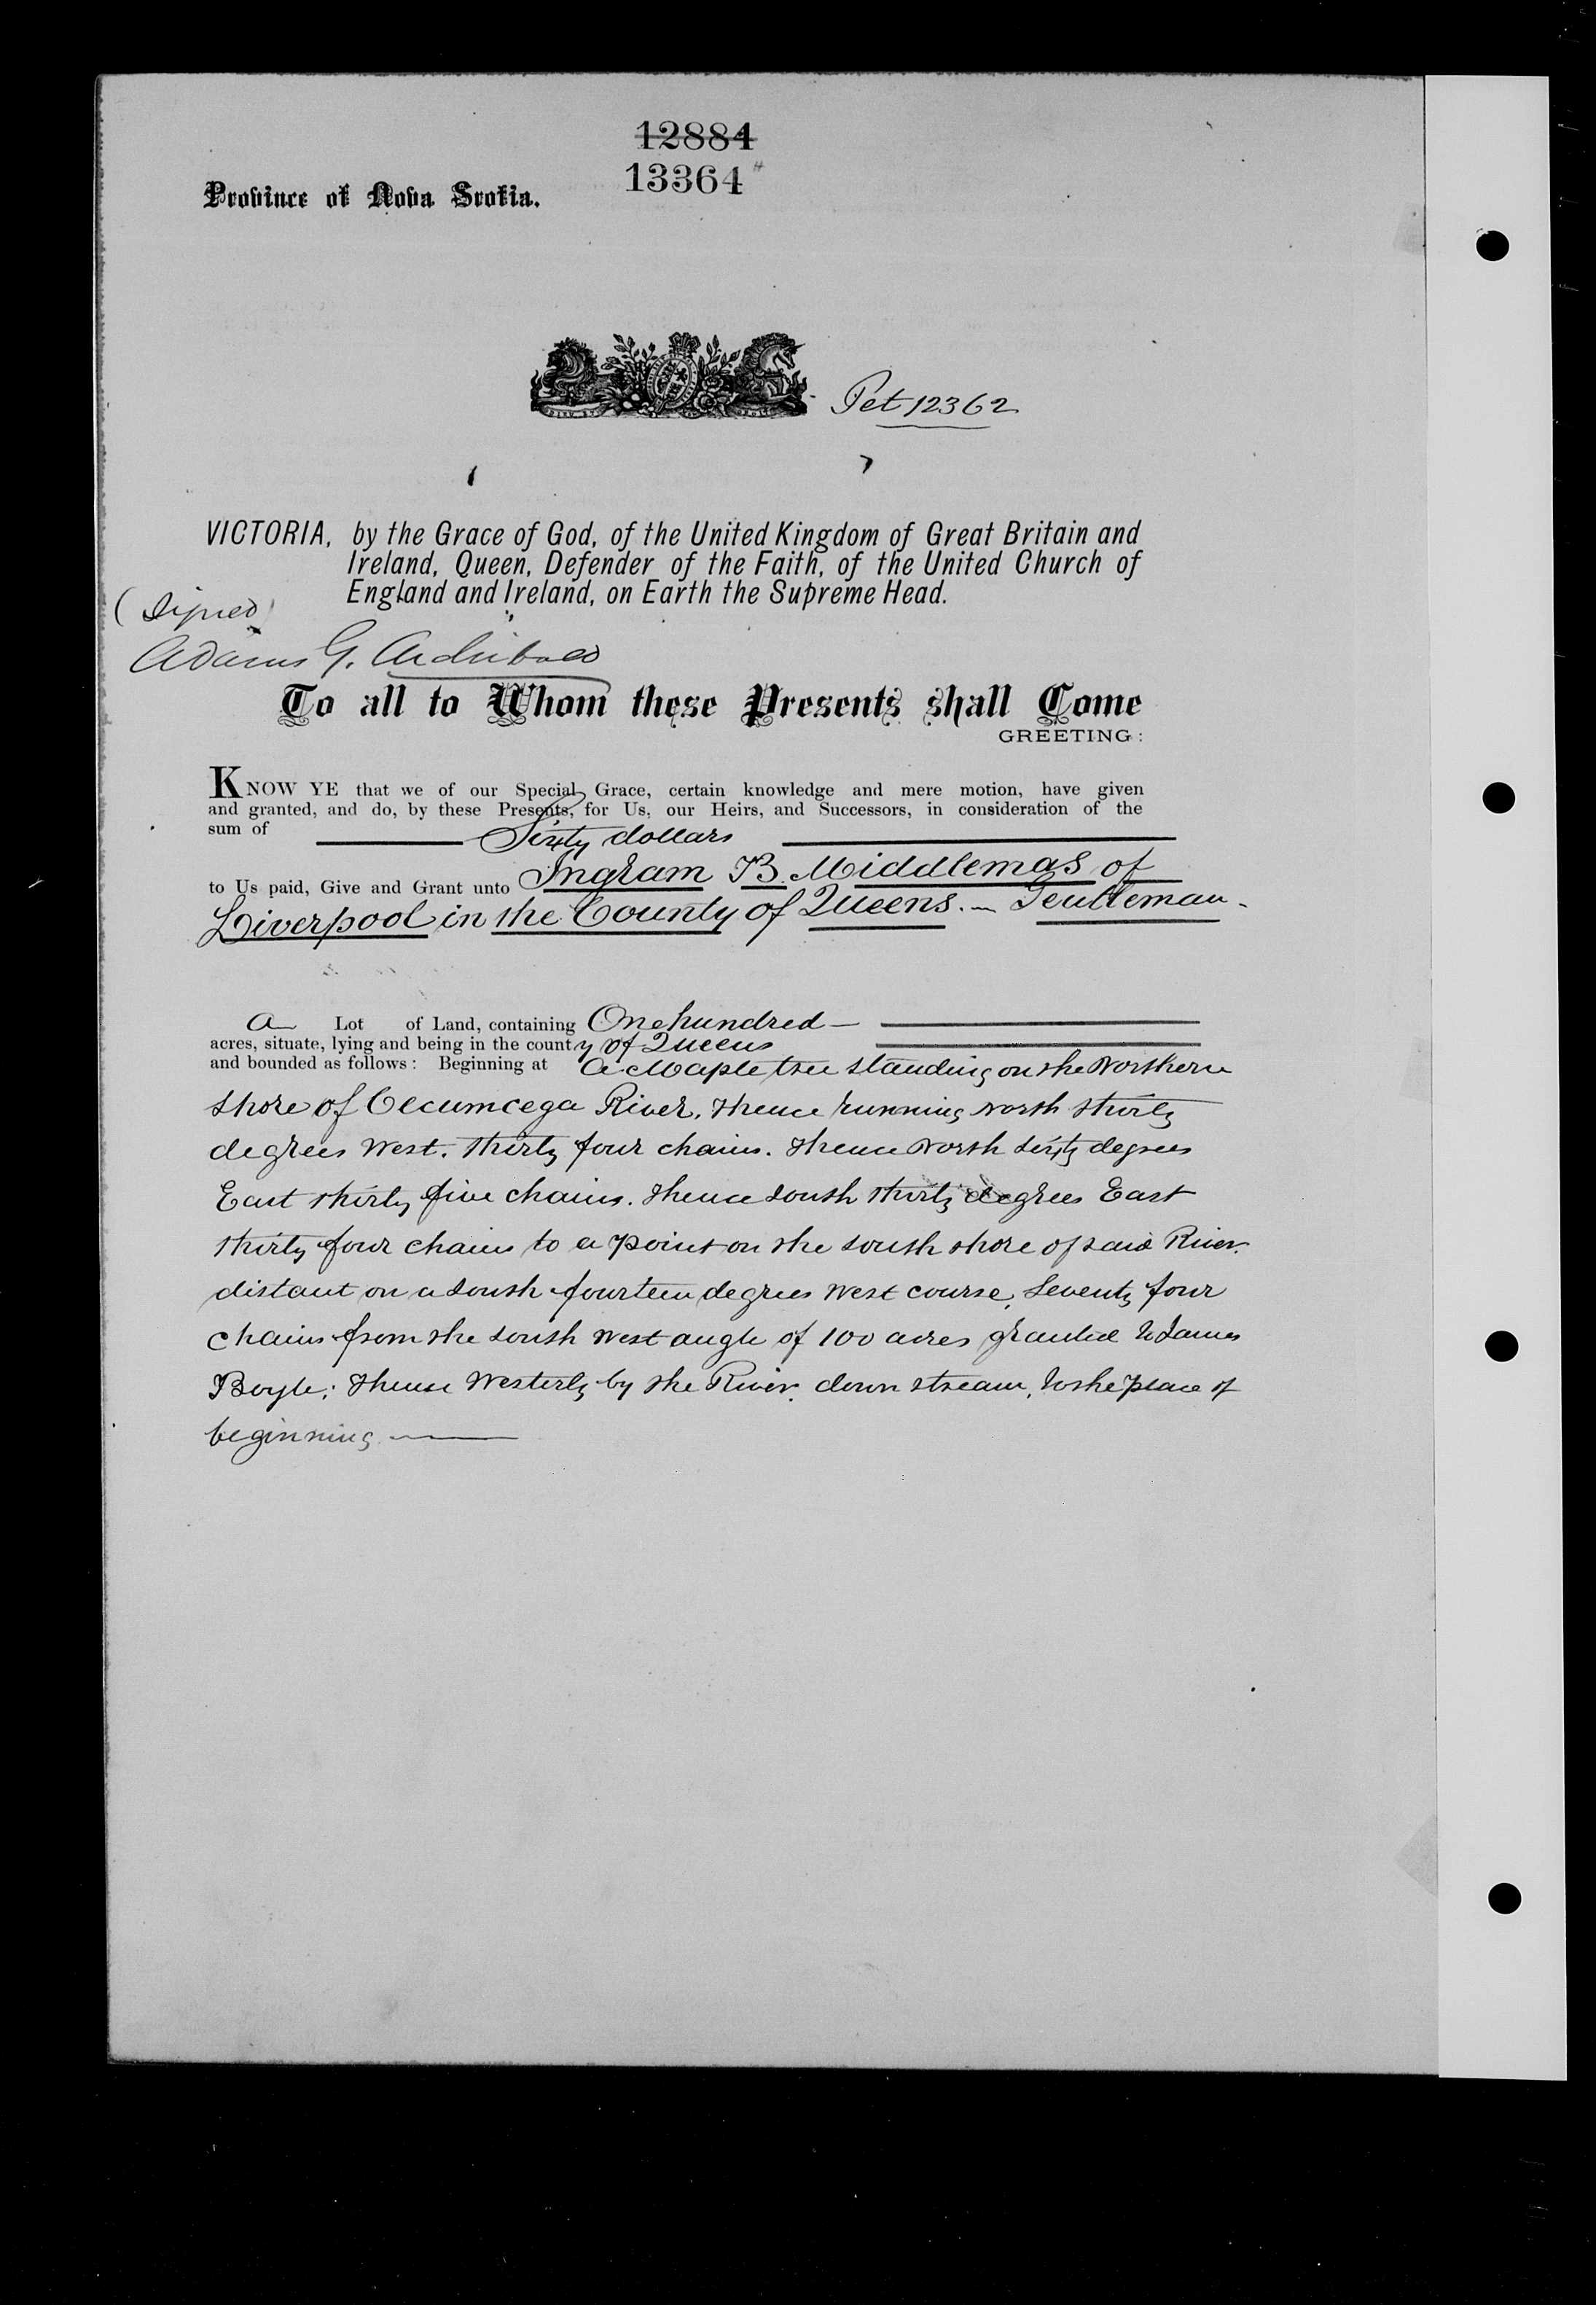 12884
13364
Province of Nova Scotia.
Pet 12362
VICTORIA, by the Grace of God, of the United Kingdom of Great Britain and
Ireland, Queen, Defender of the Faith, of the United Church of
England and Ireland, on Earth the Supreme Head.
(Signed)
Adams G. Archibald
To all to Whom these Presents shall Come
GREETING:
KNOW YE that we of our Special Grace, certain knowledge and mere motion, have given
and granted, and do, by these Presents, for Us, our Heirs, and Successors, in consideration of the
sum of Sixty dollars
to Us paid, Give and Grant unto Ingram B. Middlemas of
Liverpool in the County of Queens. — Gentleman -
A Lot of Land, containing One hundred —
acres, situate, lying and being in the county of Queens
and bounded as follows: Beginning at a Maple tree standing on the Northern
shore of River, thence running North thirty
degrees West. thirty four chains. thence North sixty degrees
East thirty five chains. thence South thirty degrees East
thirty four chains to a point on the South shore of said River.
distant on a South fourteen degrees West course, Seventy four
chains from the South West angle of 100 acres granted to James
Boyle; thence Westerly by the River. down stream, to the place of
beginning —